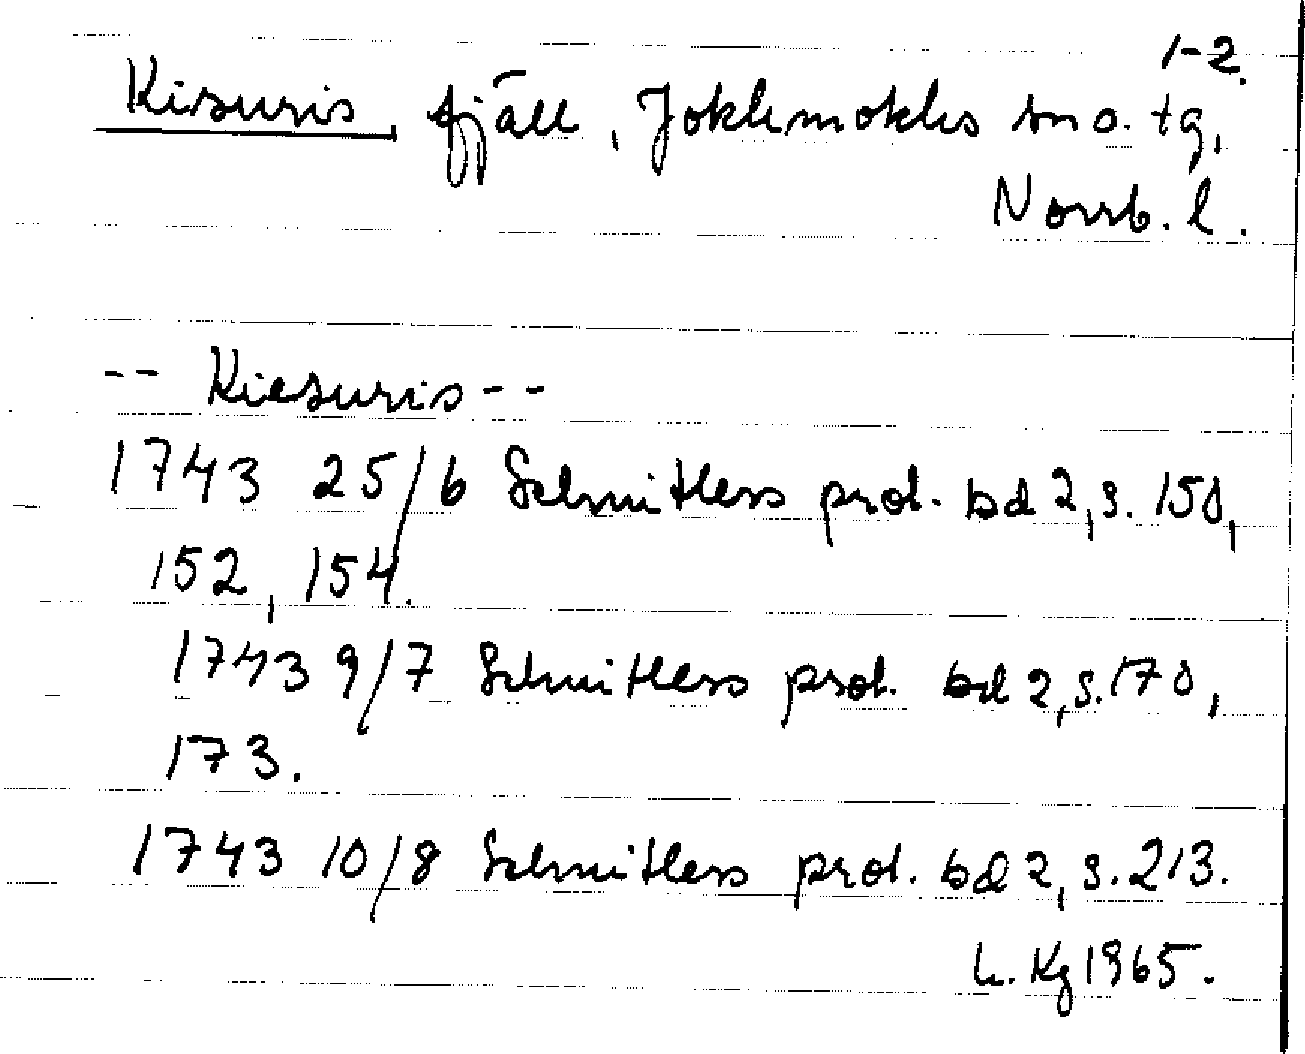 1-2.
Kisuris fjäll, Jokkmokks sn o. tg,
Norrb. l.
-- Kiesuris --
1743 25/6 Schnitlers prot. bd 2, s. 150,
152, 154.
1743 9/7 Schnitlers prot. bd 2, s. 170,
173.
1743 10/8 Schnitlers prot. bd 2, s. 213.
h. Kg 1965.